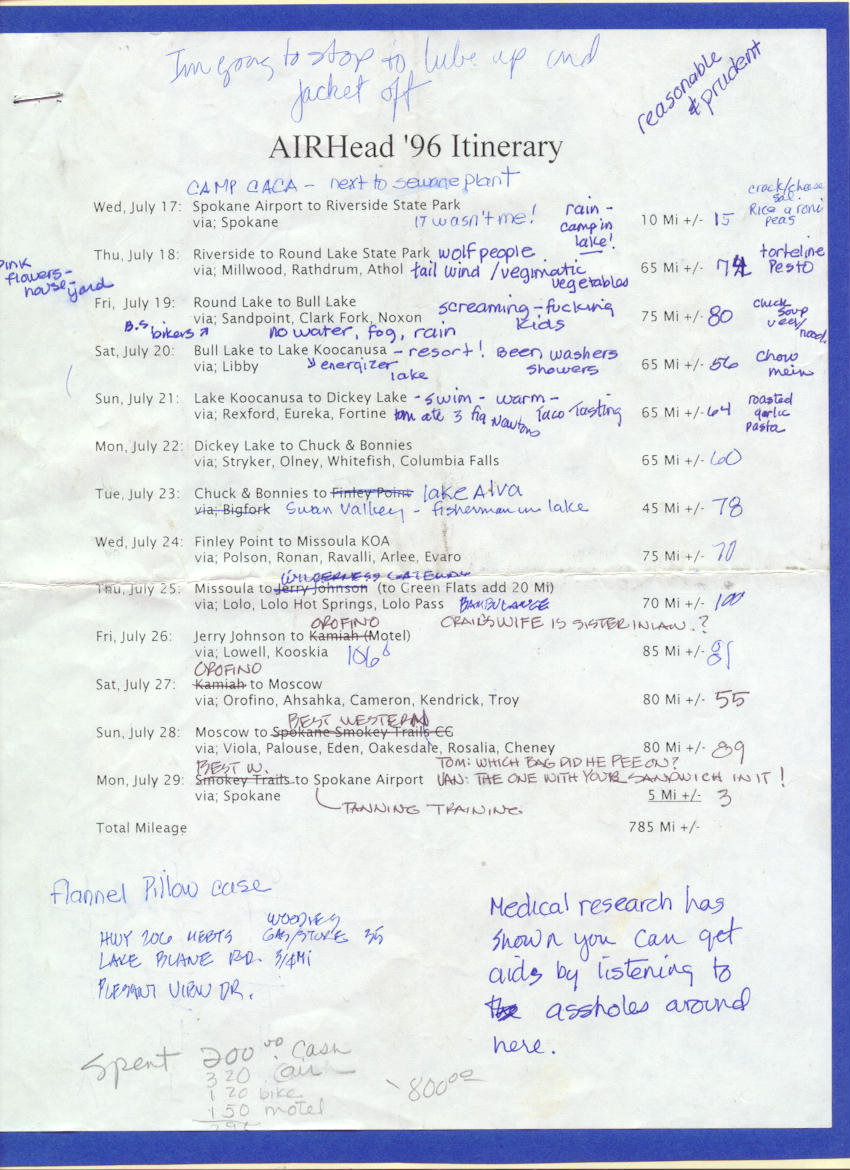 I'm going to stop to lube up and
jacket off
reasonable
& prudent
AIRHead '96 Itinerary
CAMP CACA - next to sewage plant
Wed, July 17: Spokane Airport to Riverside State Park
via; Spokane IT wasn't me! rain - camp in lake! 10 Mi +/- 15
crack/chase
Rice a roni
peas
Thu, July 18: Riverside to Round Lake State Park wolf people
via; Millwood, Rathdrum, Athol tail wind / vegimatic vegetables 65 Mi +/- 74 torteline Pesto
pink
flowers -
house - yard
Fri, July 19: Round Lake to Bull Lake screaming - fucking kids
via; Sandpoint, Clark Fork, Noxon 75 Mi +/- 80 chick soup
B.S bikers no water, fog, rain
Sat, July 20: Bull Lake to Lake Koocanusa - resort! Been washers showers
via; Libby energizer lake 65 Mi +/- 56 Chow mein
Sun, July 21: Lake Koocanusa to Dickey Lake - swim - warm -
via; Rexford, Eureka, Fortine tom ate 3 fig Newtons Taco Tasting 65 Mi +/- 64 roasted garlic pasta
Mon, July 22: Dickey Lake to Chuck & Bonnies
via; Stryker, Olney, Whitefish, Columbia Falls 65 Mi +/- 60
Tue, July 23: Chuck & Bonnies to Finley Point lake Alva
via; Bigfork Swan Valley - fisherman in lake 45 Mi +/- 78
Wed, July 24: Finley Point to Missoula KOA
via; Polson, Ronan, Ravalli, Arlee, Evaro 75 Mi +/- 70
WILDERNESS GATEWAY
Thu, July 25: Missoula to Jerry Johnson (to Green Flats add 20 Mi)
via; Lolo, Lolo Hot Springs, Lolo Pass BAMBULANCE 70 Mi +/- 100
OROFINO CRAIG'S WIFE IS SISTER IN LAW.?
Fri, July 26: Jerry Johnson to Kamiah (Motel)
via; Lowell, Kooskia 106° 85 Mi +/-
OROFINO
Sat, July 27: Kamiah to Moscow
via; Orofino, Ahsahka, Cameron, Kendrick, Troy 80 Mi +/- 55
BEST WESTERN
Sun, July 28: Moscow to Spokane Smokey Trails CG
via; Viola, Palouse, Eden, Oakesdale, Rosalia, Cheney 80 Mi +/- 89
BEST W. TOM: WHICH BAG DID HE PEE ON?
Mon, July 29: Smokey Trails to Spokane Airport VAN: THE ONE WITH YOUR SANDWICH IN IT!
via; Spokane 5 Mi +/- 3
TANNING TRAINING
Total Mileage 785 Mi +/-
flannel Pillow case
HWY 206 MEETS WOODIES GAS/STORE 35
LAKE BLANE RD. 3/4 Mi
PLESANT VIEW DR.
Medical research has
shown you can get
aids by listening to
assholes around
here.
Spent 200.00 cash
320 air
120 bike
150 motel
800.00